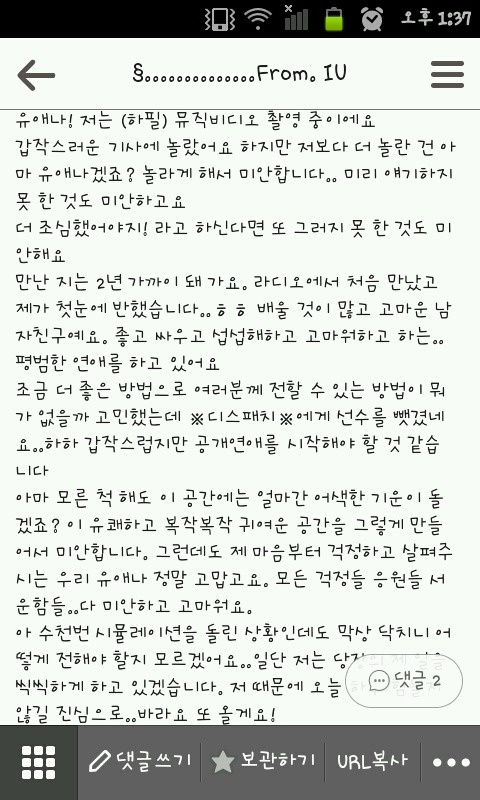 오후 1:37
§..............From. IU
유애나! 저는 (하필) 뮤직비디오 촬영 중이에요
갑작스러운 기사에 놀랐어요 하지만 저보다 더 놀란 건 아
마 유애나겠죠? 놀라게 해서 미안합니다.. 미리 얘기하지
못 한 것도 미안하고요
더 조심했어야지! 라고 하신다면 또 그러지 못 한 것도 미
안해요
만난 지는 2년 가까이 돼 가요. 라디오에서 처음 만났고
제가 첫눈에 반했습니다..ㅎㅎ 배울 것이 많고 고마운 남
자친구예요. 좋고 싸우고 섭섭해하고 고마워하고 하는..
평범한 연애를 하고 있어요
조금 더 좋은 방법으로 여러분께 전할 수 있는 방법이 뭐
가 없을까 고민했는데 ※디스패치※에게 선수를 뺏겼네
요..하하 갑작스럽지만 공개연애를 시작해야 할 것 같습
니다
아마 모른 척 해도 이 공간에는 얼마간 어색한 기운이 돌
겠죠? 이 유쾌하고 복작복작 귀여운 공간을 그렇게 만들
어서 미안합니다. 그런데도 제 마음부터 걱정하고 살펴주
시는 우리 유애나 정말 고맙고요. 모든 걱정들 응원들 서
운함들..다 미안하고 고마워요.
아 수천번 시뮬레이션을 돌린 상황인데도 막상 닥치니 어
떻게 전해야 할지 모르겠어요..일단 저는 당장의 제 일을
씩씩하게 하고 있겠습니다. 저 때문에 오늘
않길 진심으로..바라요 또 올게요!
댓글 2
댓글쓰기 보관하기 URL복사